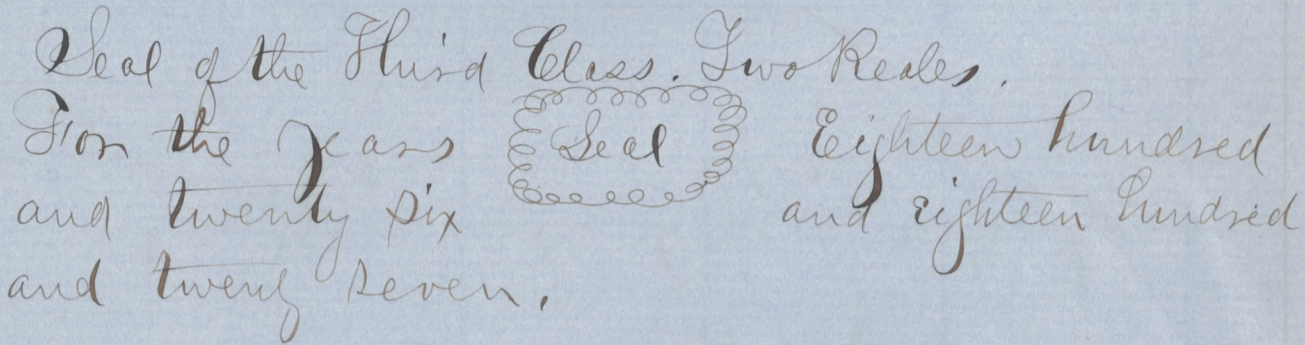 Seal of the Third Class. Two Reales.
For the years Seal Eighteen hundred
and twenty six and eighteen hundred
and twenty seven.